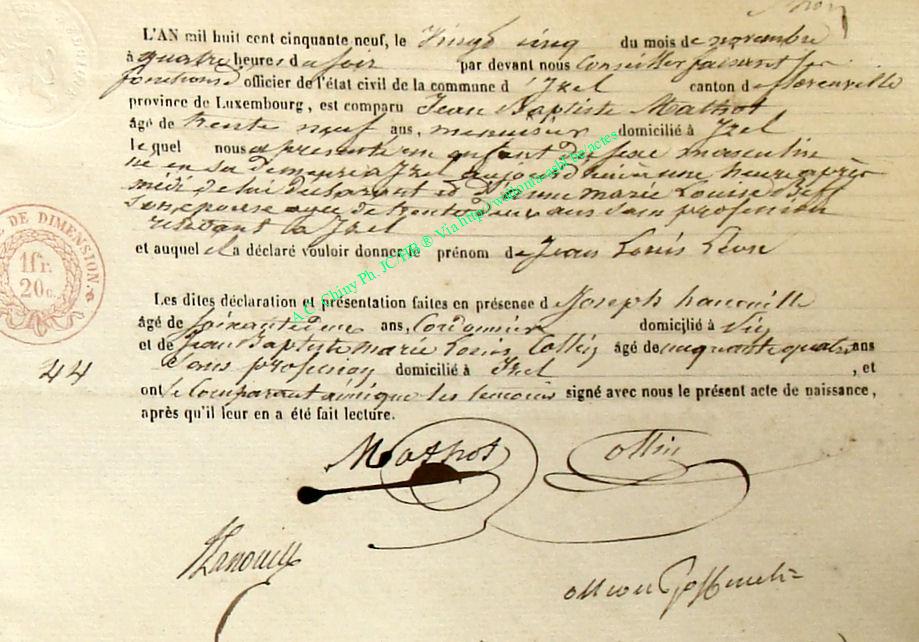 L'AN mil huit cent cinquante neuf, le Vingt cinq du mois de novembre
à quatre heures du soir par devant nous Conseiller faisant les
fonctions officier de l'état civil de la commune d'Izel canton de florenville
province de Luxembourg, est comparu Jean Baptiste Mathot
âgé de trente neuf ans, menuisier domicilié à Izel
le quel nous a présenté un enfant du sexe masculin
né en sa demeure à Izel aujourd'hui a une heure après
midi de lui déclarant et d'Anne marie Louise
son épouse agée de trente deux ans sans profession
résidant à Izel
et auquel il a déclaré vouloir donner le prénom de Jean Louis Léon
Les dites déclaration et présentation faites en présence de Joseph hanouille
âgé de ans, Cordonnier domicilié à
et de Jean Baptiste marie Louis Collin âgé de cinquante quatre ans
Sans profession domicilié à Izel, et
44
ont le Comparant ainsi que les temoins signé avec nous le présent acte de naissance,
après qu'il leur en a été fait lecture.
Mathot Collin
Hanouille
DE DIMENSION.
1fr.
20c.
A.C. Chiny Ph. JC. HB ® Via http://